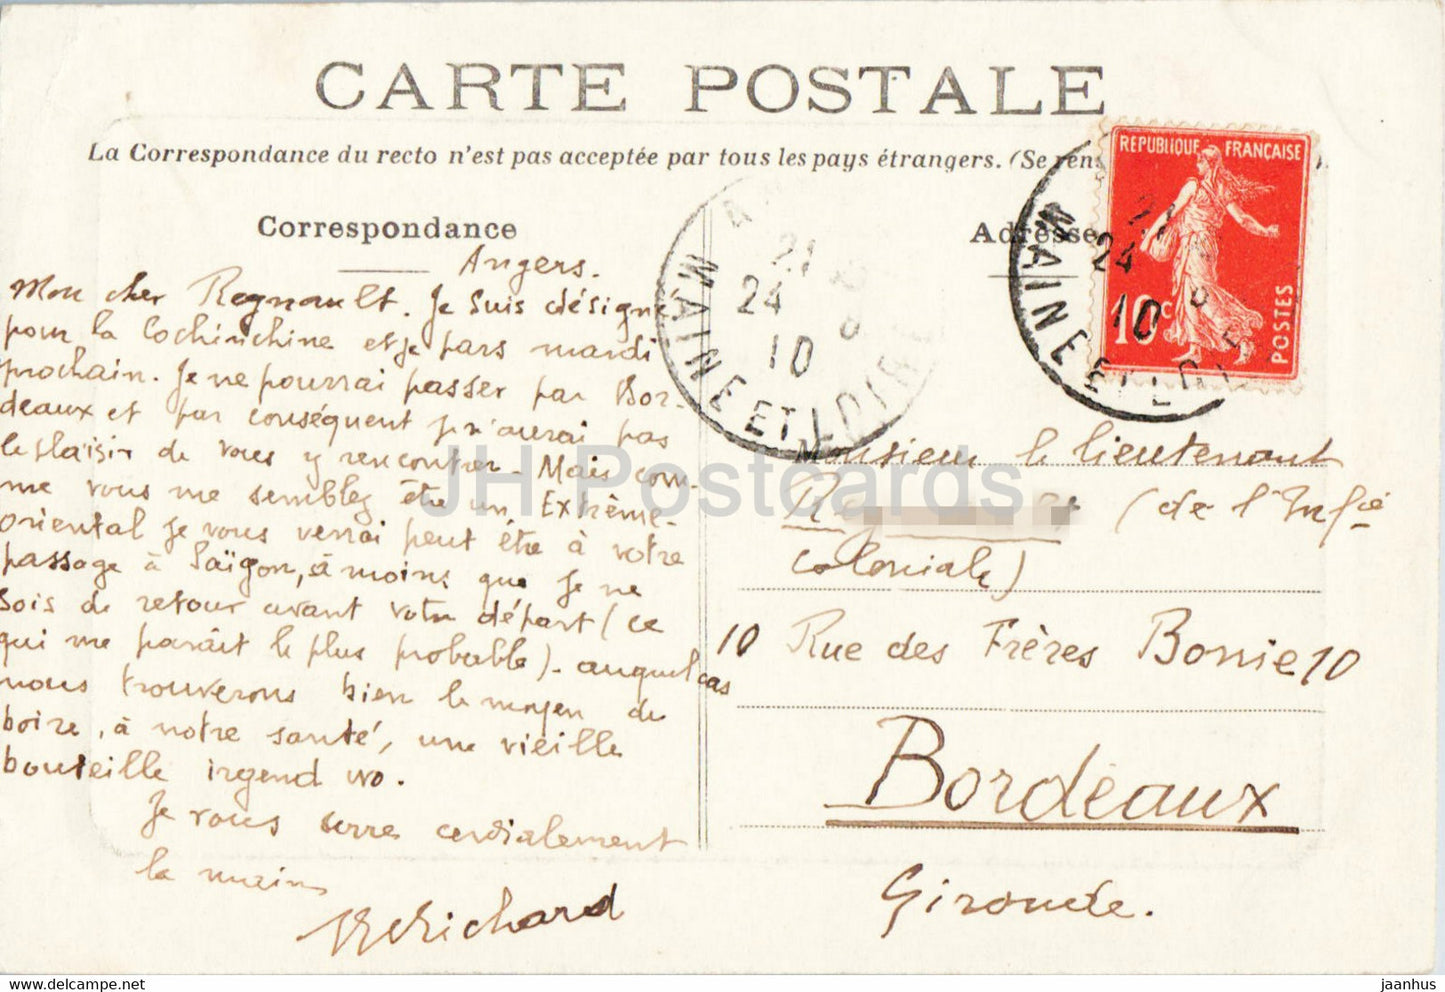 CARTE POSTALE
La Correspondance du recto n'est pas acceptée par tous les pays étrangers. (Se rens
Correspondance
Adresse
RÉPUBLIQUE FRANÇAISE
10c
POSTES
21
24
10
MAINE ET LOIRE
21
24
10
MAINE ET LOIRE
Angers.
Mon cher Regnault. Je suis désigné
pour la Cochinchine et je pars mardi
prochain. Je ne pourrai passer par Bor-
deaux et par conséquent je n'aurai pas
le plaisir de vous y rencontrer - Mais com-
me vous me semblez être un Extrême-
oriental je vous verrai peut être à votre
passage à Saïgon, à moins que je ne
sois de retour avant votre départ (ce
qui me paraît le plus probable) - auquel cas
nous trouverons bien le moyen de
boire, à notre santé, une vieille
bouteille irgend wo.
Je vous serre cordialement
la main
Richard
Monsieur le lieutenant
(de l'Infie
coloniale)
10 Rue des Frères Bonie 10
Bordeaux
Gironde.
JH Postcards
jaanhus
www.hippostcard.com